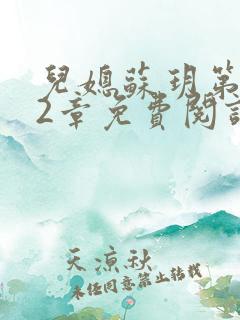 兒媳蘇玥第
2章免費閱讀
天涼秋
未经同意禁止转载